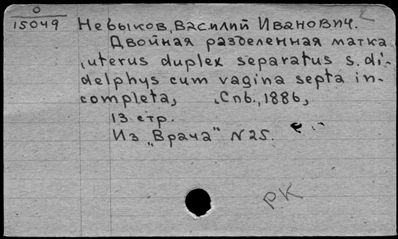 0
15049
Невыков, Василий Иванович.
Двойная разделенная матка
(uterus duplex separatus s. di-
delphys cum vagina septa in-
completa), Спб., 1886,
13 стр.
Из „Врача" N 25.
РК